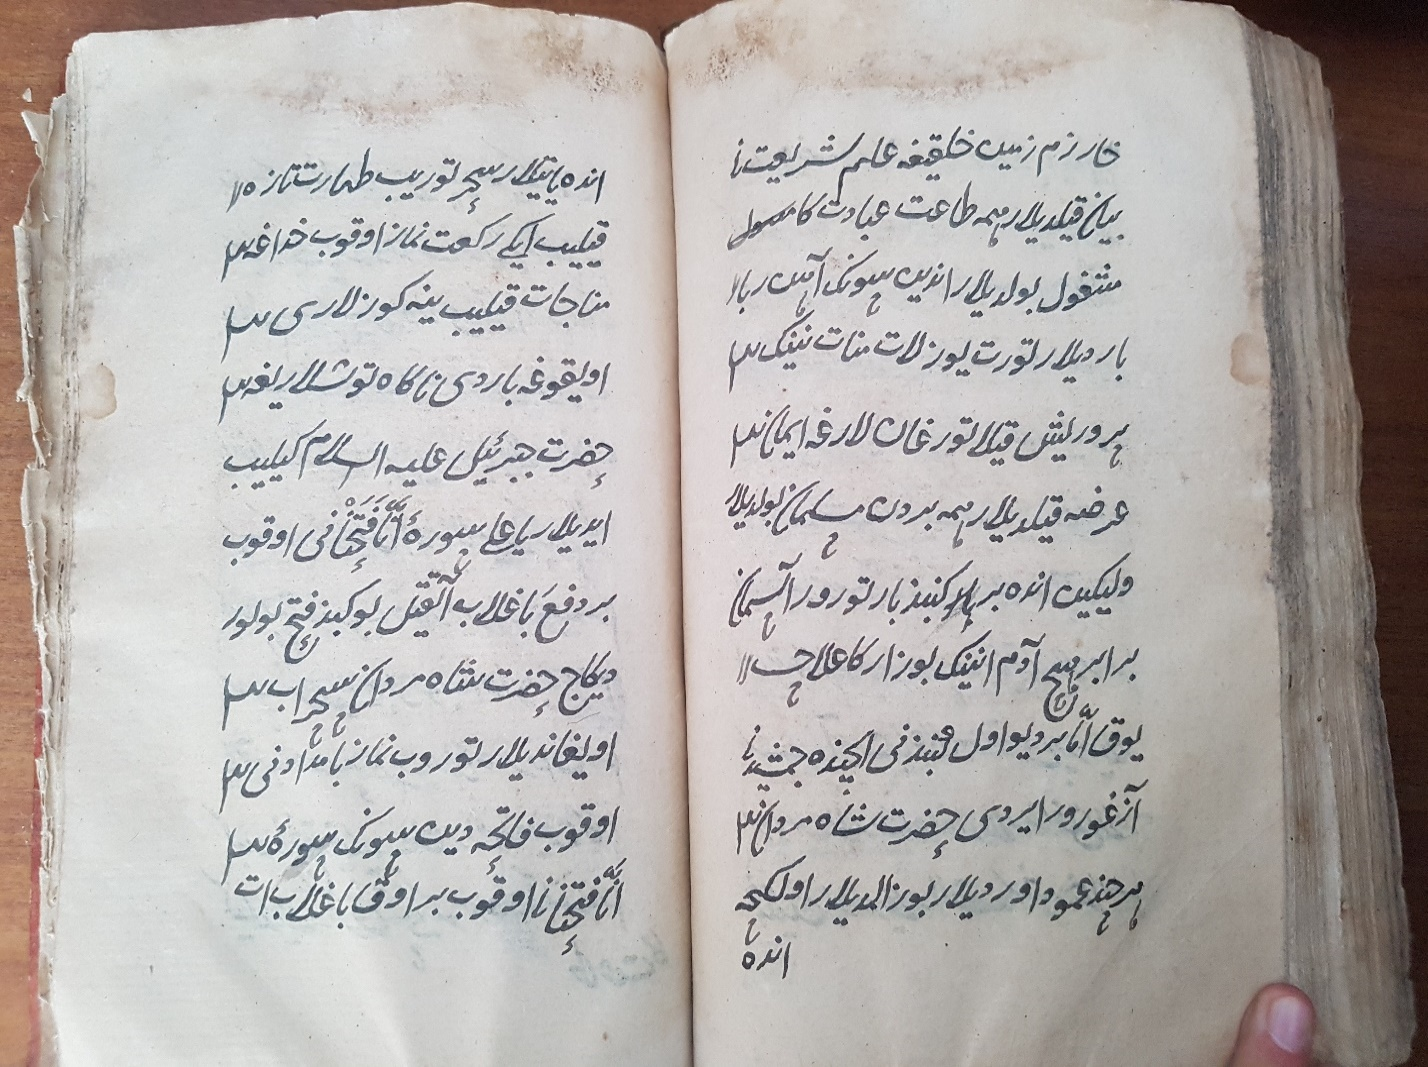 خارزم زمین خلقیغه علم شریعت نا
بیان قیلدیلار همه طاعت عبادت کا
مشغول بولدیلار اندین سونک آهس ربار
باردیلار تورت یوز لات منات نینک
پرورلیش قیلا تورغان لارغه ایمان
عرضه قیلدیلار همه بردن مسلمان بولدیلار
ولیکین انده بر کنبذ بار تورور آسمان
برابر هیچ آدم انینک بوزارکا علاج
یوق اما بر دیو اول کنبذ نی ایچنده جمشید
آزغورور ایردی حضرت شاه مردان
هر چند عمود اوردیلار بوزالمدیلار اول کیچه
انده
انده یاتیلار سحر توریب طهارت تازه
قیلیب ایکی رکعت نماز اوقوب خداغه
مناجات قیلیب ینه کوزلاری
اویقوغه باردی ناکاه توشلاریغه
حضرت جبرئیل علیه السلام کیلیب
ایدیلار یا علی سورهٔ انا فتحنا نی اوقوب
بر دفع باغلاب آتقیل بو کنبذ فتح بولور
دیکاج حضرت شاه مردان سحراب
اویغاندیلار توروب نماز بامداد نی
اوقوب فاتحه دین سونک سورهٔ
انا فتحنا نا اوقوب بر اوق باغلاب ات